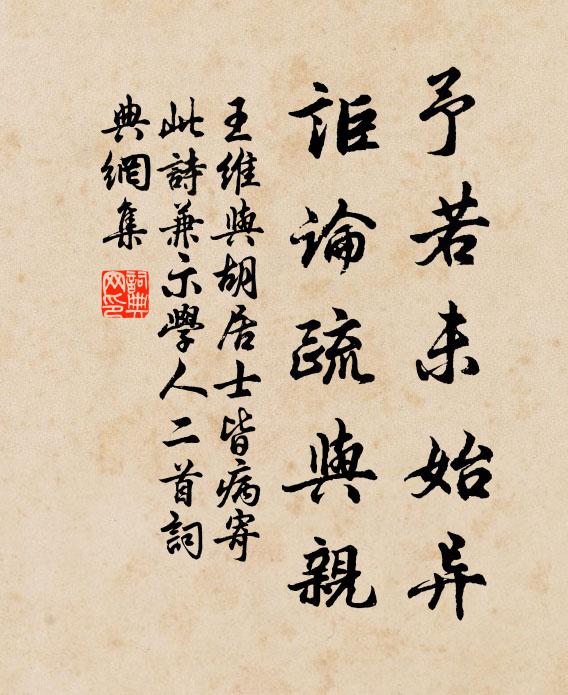 予若未始异
詎論疏與親
王維與胡居士皆病寄
此詩兼示學人二首詞
典網集
詞典網印